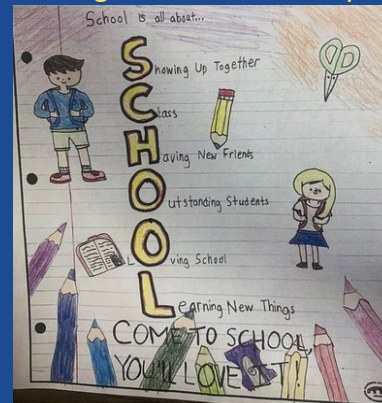 School is all about...
Showing Up Together
Class
Having New Friends
Outstanding Students
LOving School
Learning New Things
COME TO SCHOOL,
YOU'LL LOVE IT!